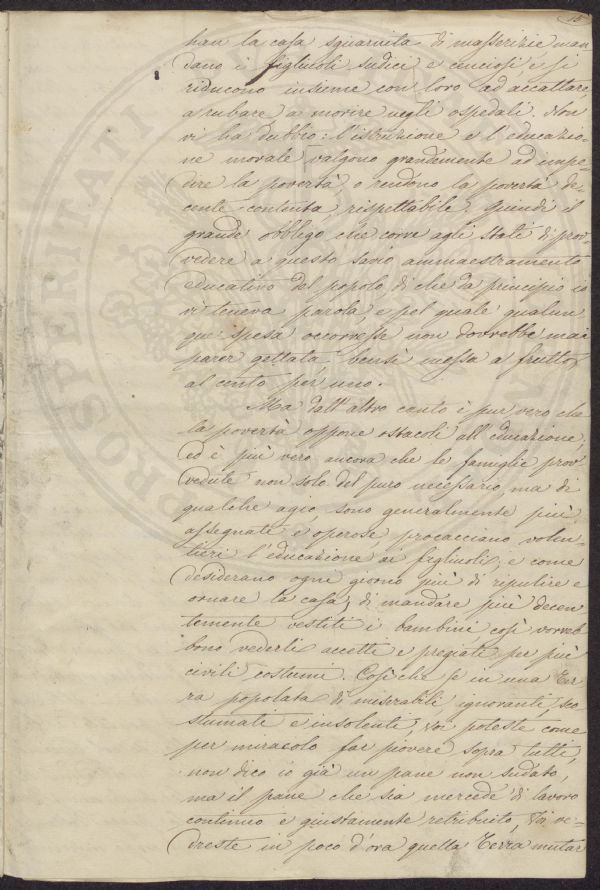 15
han la casa sguarnita di masserizie man
dano i figliuoli sudici e cenciosi, e si
riducono insieme con loro ad accattare,
a rubare a morire negli ospedali. Non
vi ha dubbio: l'istruzione e l'educazio-
ne morale valgono grandemente ad impe-
dire la povertà, o rendono la povertà de-
cente contenta, rispettabile. Quindi il
grande obbligo che corre agli Stati di prov-
vedere a questo savio ammaestramento
educativo del popolo, di che da principio io
vi teneva parola, e pel quale qualun
que spesa occorresse non dovrebbe mai
parer gettata, bensì messa a frutto
al cento per uno.
Ma dall'altro canto è pur vero che
la povertà oppone ostacoli all'educazione,
ed è più vero ancora che le famiglie prov
vedute non solo del puro necessario, ma di
qualche agio, sono generalmente più
assegnate e operose procacciano volen-
tieri l'educazione ai figliuoli, e come
desiderano ogni giorno più di ripulire e
ornare la casa, di mandare più decen
temente vestiti i bambini, così vorreb
bono vederli accetti e pregiati per più
civili costumi. Così che se in una Ter
ra popolata di miserabili ignoranti, sco
stumati e insolenti, voi poteste come
per miracolo far piovere sopra tutti,
non dico io già un pane non sudato,
ma il pane che sia mercede di lavoro
continuo e giustamente retribuito, Voi ve-
dreste in poco d'ora quella Terra mutar
PROSPERITATI